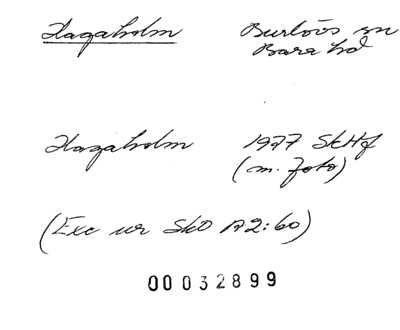 Hagaholm Burlövs sn
Bara hd
Hagaholm 1977 SkHf
(m. foto)
(Exc ur SkO A2:60)
00032899